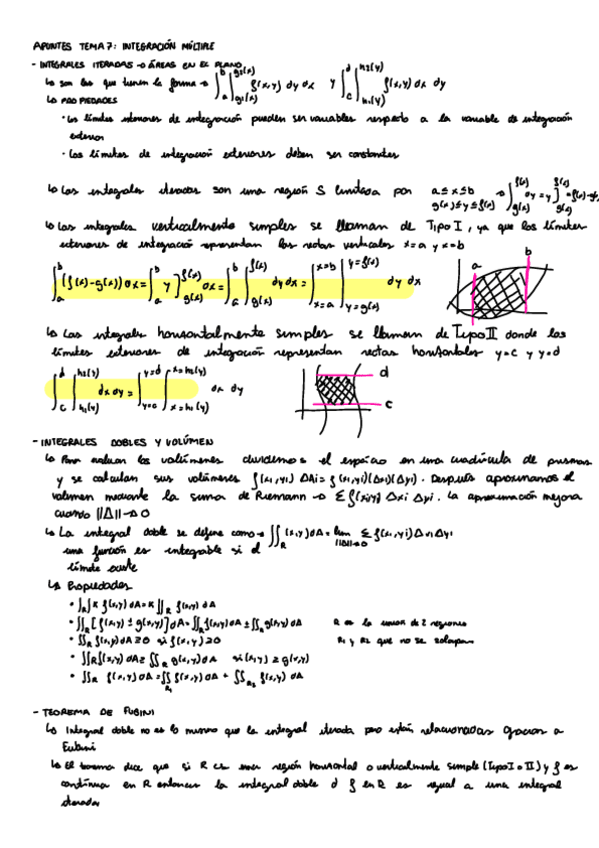 APUNTES TEMA 7: INTEGRACIÓN MÚLTIPLE
- INTEGRALES ITERADAS → ÁREAS EN EL PLANO
↳ son las que tienen la forma → ∫_a^b ∫_{g1(x)}^{g2(x)} f(x,y) dy dx y ∫_c^d ∫_{h1(y)}^{h2(y)} f(x,y) dx dy
↳ PROPIEDADES
· Los límites interiores de integración pueden ser variables respecto a la variable de integración
exterior
· Los límites de integración exteriores deben ser constantes
↳ Las integrales iteradas son una región S limitada por a ≤ x ≤ b
g(x) ≤ y ≤ f(x) → ∫_{g(x)}^{f(x)} dy = y]_{g(x)}^{f(x)} = f(x)-g(x)
↳ Las integrales verticalmente simples se llaman de Tipo I, ya que los límites
exteriores de integración representan las rectas verticales x=a y x=b
∫_a^b (f(x)-g(x)) dx = ∫_a^b y]_{g(x)}^{f(x)} dx = ∫_a^b ∫_{g(x)}^{f(x)} dy dx = ∫_{x=a}^{x=b} ∫_{y=g(x)}^{y=f(x)} dy dx
a b
↳ Las integrales horizontalmente simples se llaman de Tipo II donde los
límites exteriores de integración representan rectas horizontales y=c y y=d
∫_c^d ∫_{h1(y)}^{h2(y)} dx dy = ∫_{y=c}^{y=d} ∫_{x=h1(y)}^{x=h2(y)} dx dy
d
c
- INTEGRALES DOBLES Y VOLÚMEN
↳ Para evaluar los volúmenes dividimos el espacio en una cuadrícula de prismas
y se calculan sus volúmenes f(xi,yi) ΔAi = f(xi,yi)(Δxi)(Δyi). Después aproximamos el
volumen mediante la suma de Riemann → Σ f(xi,yi) Δxi Δyi. La aproximación mejora
cuando ||Δ|| → 0
↳ La integral doble se define como → ∫∫_R (x,y)dA = lim_{||Δ||→0} Σ f(xi,yi) Δxi Δyi
una función es integrable si el
límite existe
↳ Propiedades
· ∫∫_R K f(x,y) dA = K ∫∫_R f(x,y) dA
· ∫∫_R [f(x,y) ± g(x,y)] dA = ∫∫_R f(x,y) dA ± ∫∫_R g(x,y) dA R es la unión de 2 regiones
· ∫∫_R f(x,y) dA ≥ 0 si f(x,y) ≥ 0 R1 y R2 que no se solapan
· ∫∫_R f(x,y) dA ≥ ∫∫_R g(x,y) dA si f(x,y) ≥ g(x,y)
· ∫∫_R f(x,y) dA = ∫∫_{R1} f(x,y) dA + ∫∫_{R2} f(x,y) dA
- TEOREMA DE FUBINI
↳ Integral doble no es lo mismo que la integral iterada pero están relacionadas gracias a
Fubini
↳ El teorema dice que si R es una región horizontal o verticalmente simple (Tipo I o II) y f es
continua en R entonces la integral doble d f en R es igual a una integral
iterada